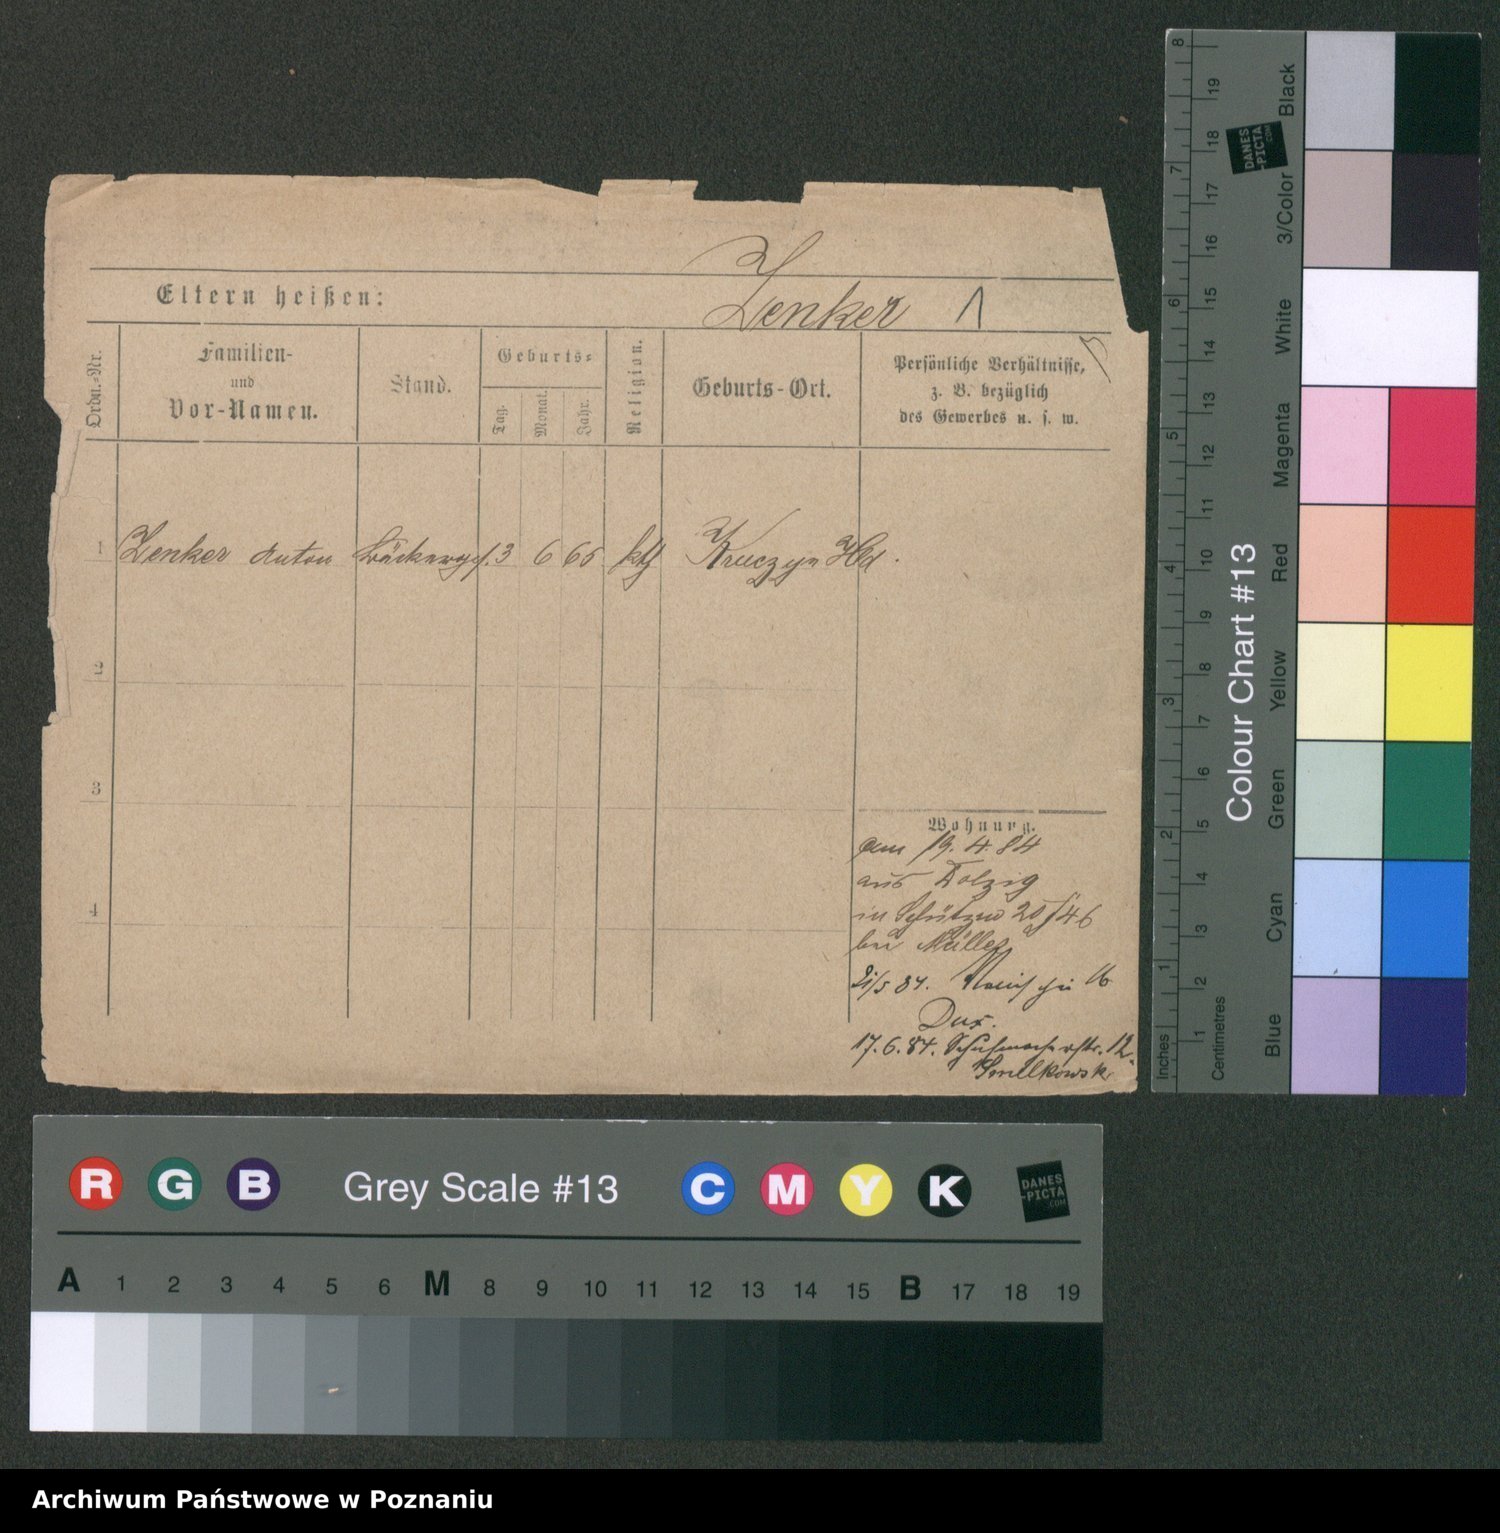 Zenker
Eltern heißen:
Ordn.-Nr.
Familien-
und
Vor-Namen.
Stand.
Geburts-
Tag.
Monat.
Jahr.
Religion.
Geburts-Ort.
Persönliche Verhältnisse,
z. B. bezüglich
des Gewerbes u. s. w.
1 Zenker Anton Bäckerges. 3 6 65 kth
2
3
4
Wohnung.
am 19. 4. 84
aus Dolzig
in Schützen 20/
bei Müller
84.
17. 6. 84. Schuhmacherstr. 12.
Inches
1
2
3
4
5
6
7
8
Centimetres
1
2
3
4
5
6
7
8
9
10
11
12
13
14
15
16
17
18
19
DANES
-PICTA
.COM
Colour Chart #13
Blue
Cyan
Green
Yellow
Red
Magenta
White
3/Color
Black
R G B Grey Scale #13 C M Y K
DANES
-PICTA
.COM
A 1 2 3 4 5 6 M 8 9 10 11 12 13 14 15 B 17 18 19
Archiwum Państwowe w Poznaniu